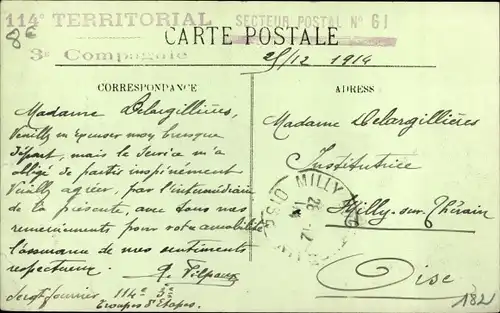 114e TERRITORIAL
SECTEUR POSTAL No 61
3e Compagnie
8€
CARTE POSTALE
25/12 1914
CORRESPONDANCE
ADRESSE
Madame Delargillières,
Veuillez m'excuser mon brusque
départ, mais le service m'a
obligé de partir inopinément
Veuillez agréer, par l'intermédiaire
de la présente, avec tous mes
remerciements pour votre amabilité
l'assurance de mes sentiments
respectueux.
Sergt fourrier 114e 3e
Troupes d'Etapes.
Madame Delargillières
Institutrice
Milly-sur-Thérain
Oise
MILLY
OISE
26 -12
14
182